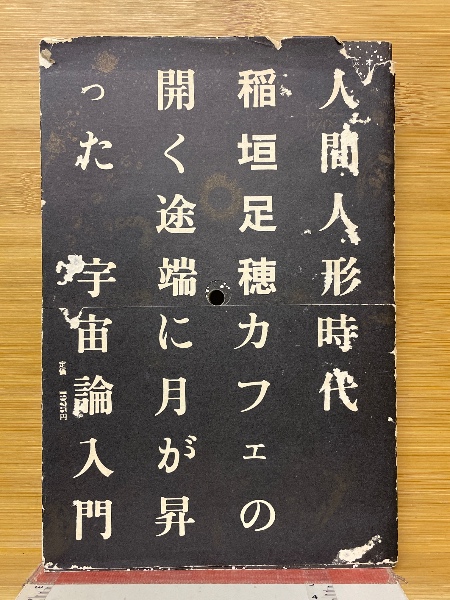 人間人形時代
稲垣足穂カフェの
開く途端に月が昇
った 宇宙論入門
定価 1975円